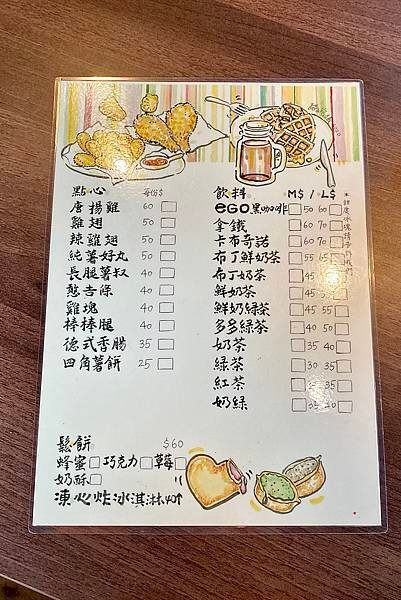 點心 每份$
唐揚雞 60
雞翅 50
辣雞翅 50
純薯好丸 50
長腿薯叔 40
憨吉條 40
雞塊 40
棒棒腿 40
德式香腸 35
四角薯餅 25
鬆餅 $60
蜂蜜 巧克力 草莓
奶酥
凍心炸冰淇淋
飲料 M$ / L$
ego黑咖啡 50 60
拿鐵 60 70
卡布奇諾 60 70
布丁鮮奶茶 55 65
布丁奶茶 45
鮮奶茶 45 55
鮮奶綠茶 45 55
多多綠茶 45 50
奶茶 35 40
綠茶 30 35
紅茶 30 35
奶綠 35 40